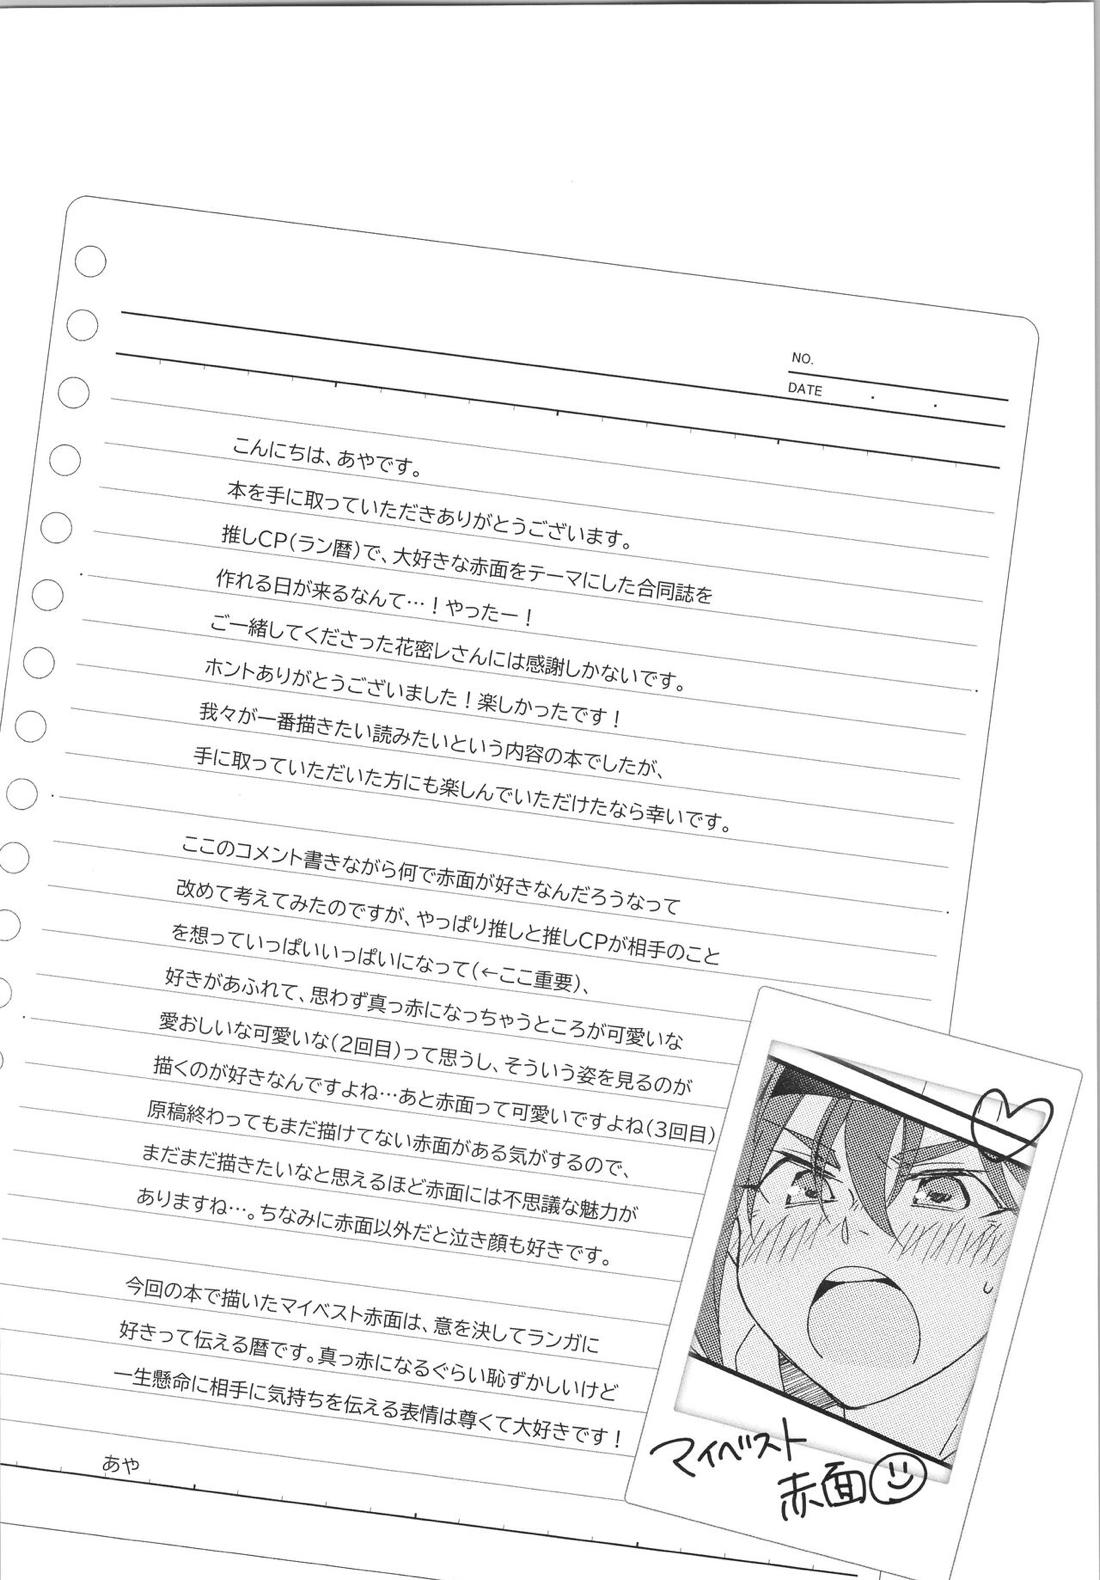 NO.
DATE . .
こんにちは、あやです。
本を手に取っていただきありがとうございます。
推しCP(ラン暦)で、大好きな赤面をテーマにした合同誌を
作れる日が来るなんて…！やったー！
ご一緒してくださった花密レさんには感謝しかないです。
ホントありがとうございました！楽しかったです！
我々が一番描きたい読みたいという内容の本でしたが、
手に取っていただいた方にも楽しんでいただけたなら幸いです。
ここのコメント書きながら何で赤面が好きなんだろうなって
改めて考えてみたのですが、やっぱり推しと推しCPが相手のこと
を想っていっぱいいっぱいになって(←ここ重要)、
好きがあふれて、思わず真っ赤になっちゃうところが可愛いな
愛おしいな可愛いな(2回目)って思うし、そういう姿を見るのが
描くのが好きなんですよね…あと赤面って可愛いですよね(3回目)
原稿終わってもまだ描けてない赤面がある気がするので、
まだまだ描きたいなと思えるほど赤面には不思議な魅力が
ありますね…。ちなみに赤面以外だと泣き顔も好きです。
今回の本で描いたマイベスト赤面は、意を決してランガに
好きって伝える暦です。真っ赤になるぐらい恥ずかしいけど
一生懸命に相手に気持ちを伝える表情は尊くて大好きです！
あや
マイベスト
赤面